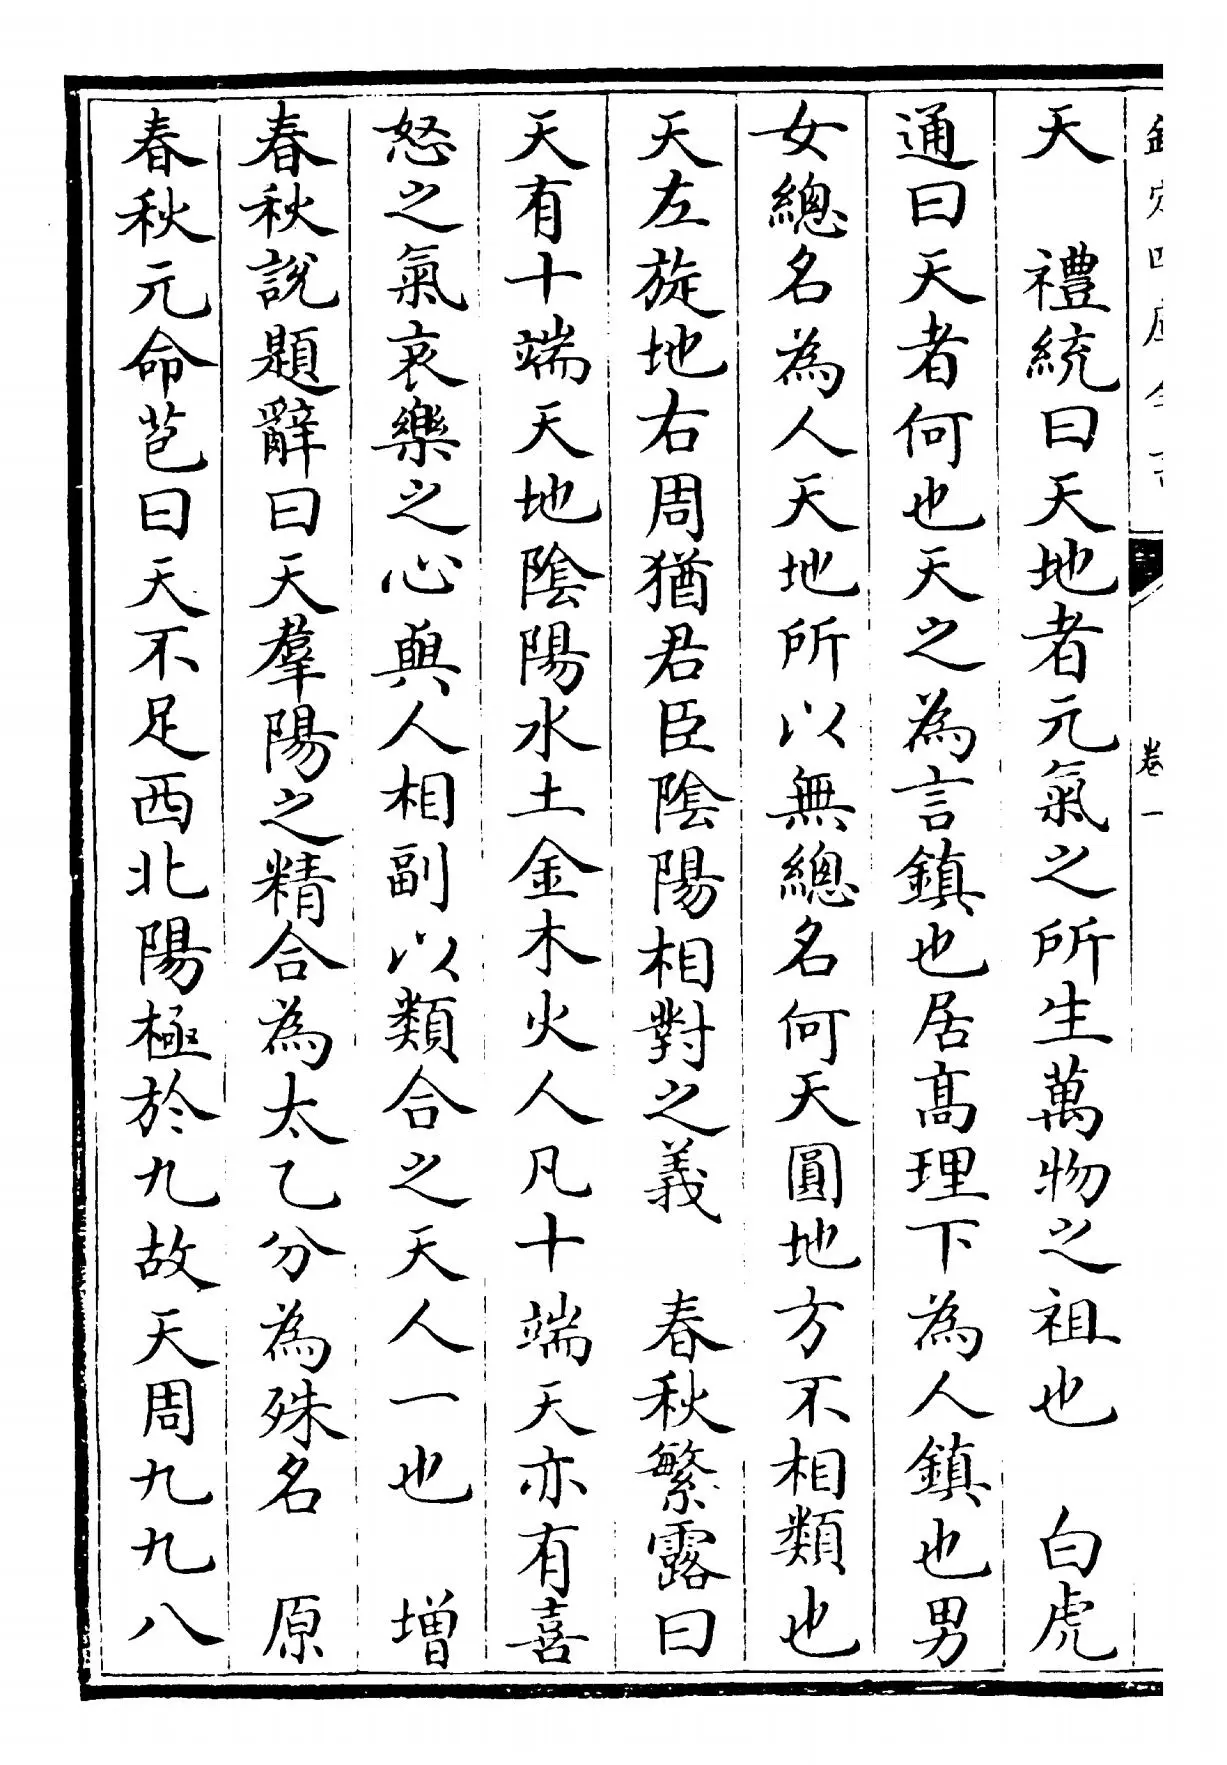 欽定四庫全書 卷一
天 禮統曰天地者元氣之所生萬物之祖也 白虎
通曰天者何也天之為言鎮也居髙理下為人鎮也男
女總名為人天地所以無總名何天圓地方不相類也
天左旋地右周猶君臣隂陽相對之義 春秋繁露曰
天有十端天地隂陽水土金木火人凡十端天亦有喜
怒之氣哀樂之心與人相副以類合之天人一也 增
春秋說題辭曰天羣陽之精合為太乙分為殊名 原
春秋元命苞曰天不足西北陽極於九故天周九九八